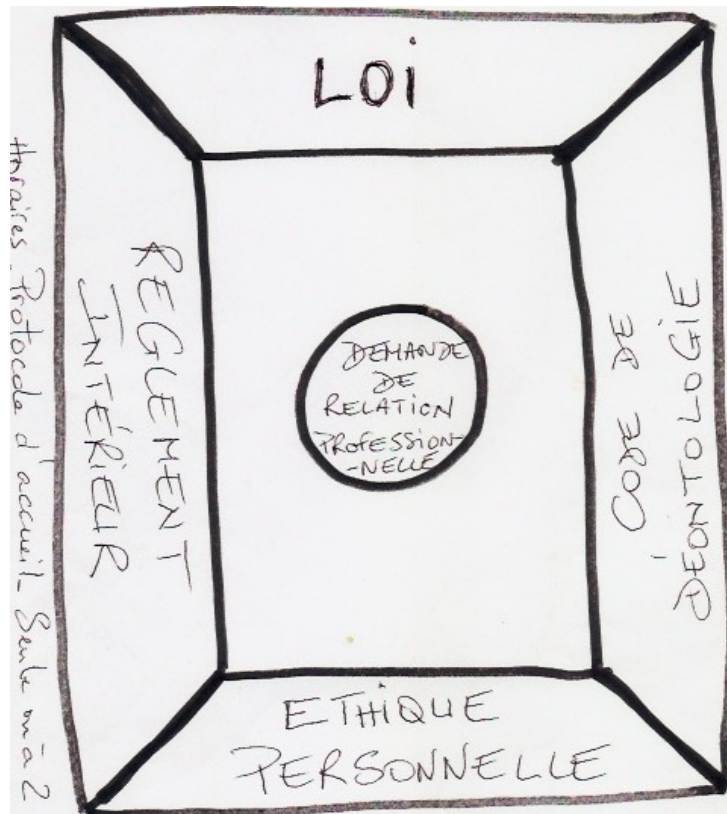 LOi
REGLEMENT
INTÉRiEUR
Horaires_Protocole d'accueil_Seule ou à 2
DEMANDE
DE
RELATION
PROFESSION-
-NELLE
CODE DE
DÉONTOLOGiE
ETHiQUE
PERSONNELLE